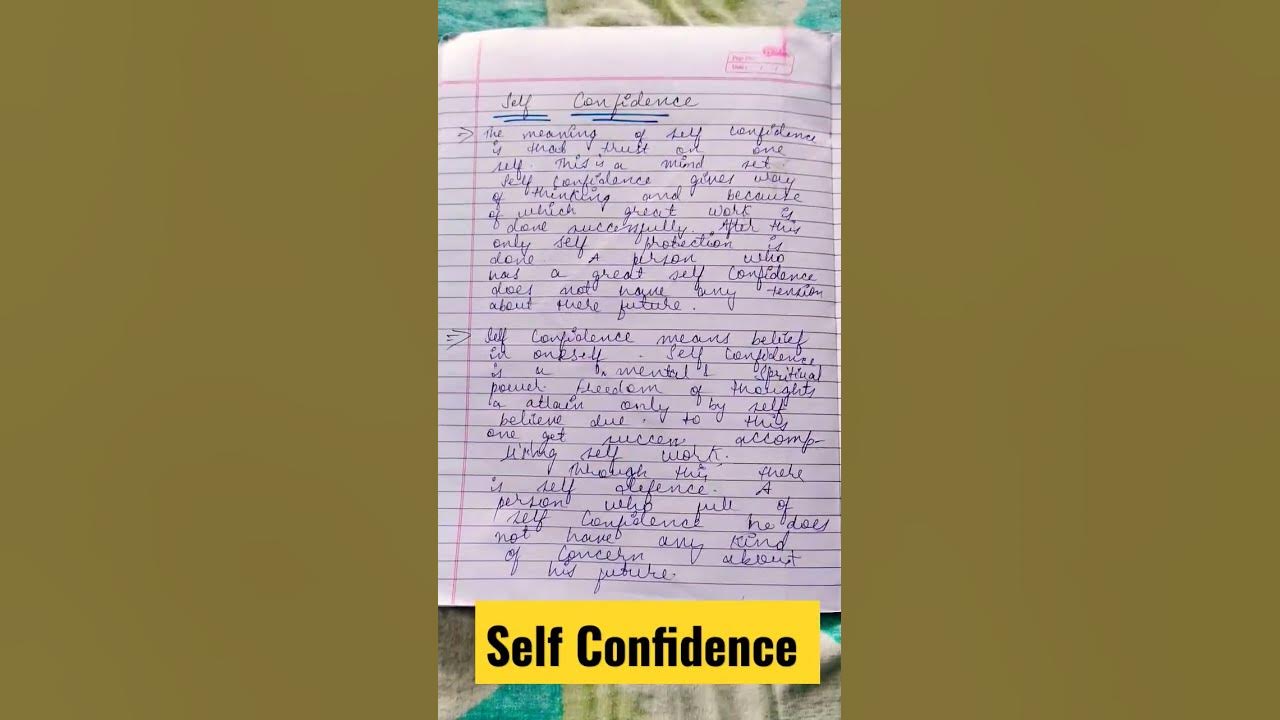 Page No.
Date: / /
Self Confidence
=> The meaning of self confidence
is that trust on one
self. This is a mind set.
Self confidence gives way
of thinking and because
of which great work is
done successfully. After this
only self protection is
done. A person who
has a great self confidence
does not have any tension
about there future.
=> Self confidence means belief
in oneself. Self confidence
is a mental & spritual
power. freedom of thoughts
a attain only by self
believe due. to this
one get success accomp-
lishing self work.
Through this, there
is self defence. A
person who full of
self confidence he does
not have any kind
of concern about
his future.
Self Confidence